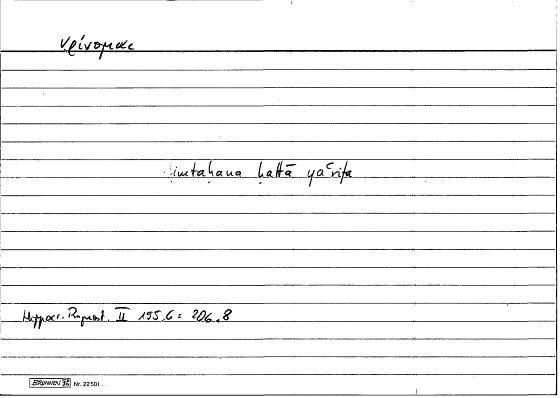 κρίνομαι
imtaḥana ḥattā yaʿrifa
Hippocr. Prognost. II 195,6 = 206,8
BRUNNEN Nr. 22501